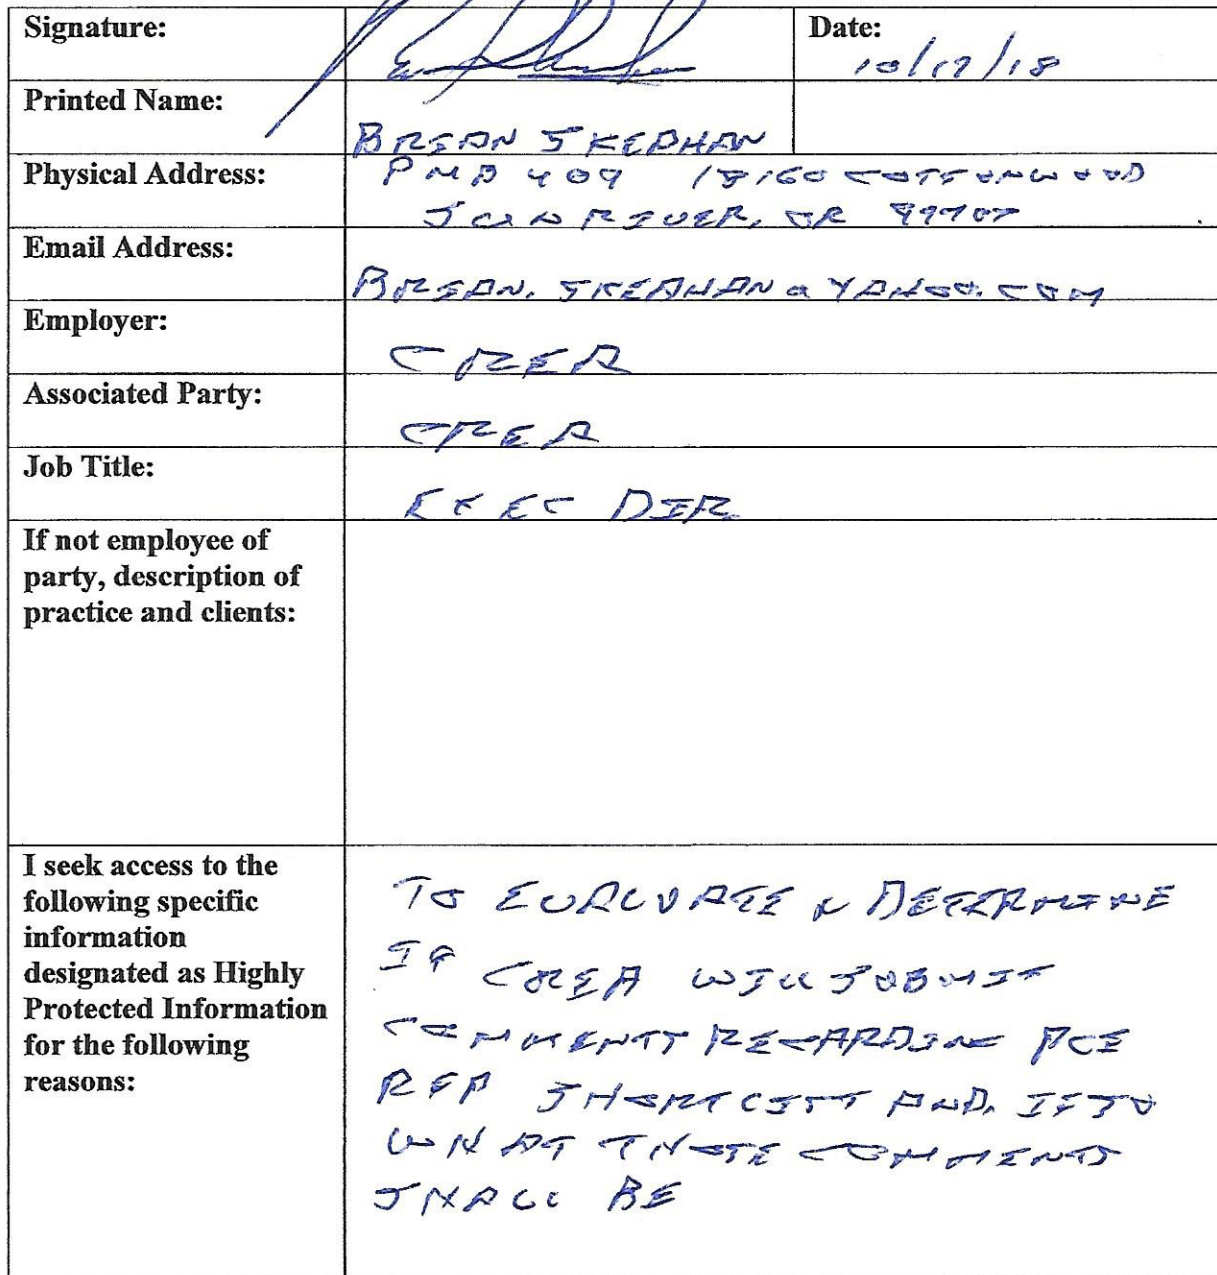 Signature:
Date:
10/17/18
Printed Name:
BRIAN SKEAHAN
Physical Address:
PMB 409 18160 COTTONWOOD
SUNRIVER, OR 97707
Email Address:
BRIAN.SKEAHAN@YAHOO.COM
Employer:
CREA
Associated Party:
CREA
Job Title:
EXEC DIR
If not employee of
party, description of
practice and clients:
I seek access to the
following specific
information
designated as Highly
Protected Information
for the following
reasons:
TO EVALUATE & DETERMINE
IF CREA WILL SUBMIT
COMMENTS REGARDING PGE
RFP SHORTLIST AND, IF SO
WHAT THOSE COMMENTS
SHALL BE